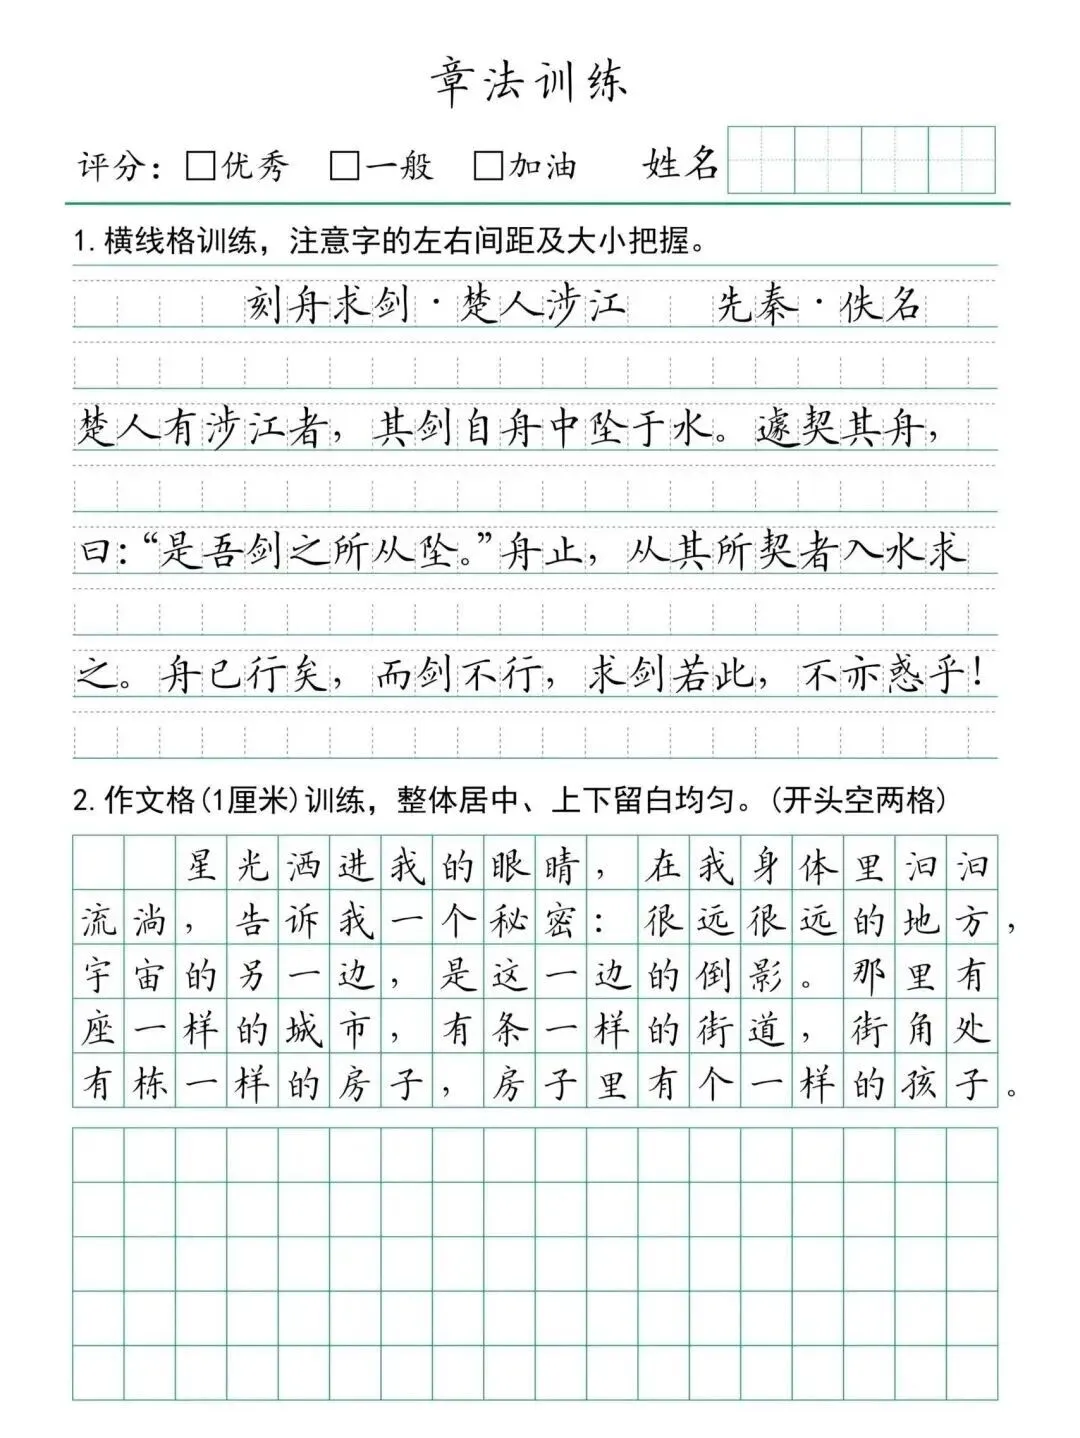 章法训练
评分：□优秀 □一般 □加油 姓名
1.横线格训练，注意字的左右间距及大小把握。
刻舟求剑·楚人涉江 先秦·佚名
楚人有涉江者，其剑自舟中坠于水。遽契其舟，
曰：“是吾剑之所从坠。”舟止，从其所契者入水求
之。舟已行矣，而剑不行，求剑若此，不亦惑乎！
2.作文格(1厘米)训练，整体居中、上下留白均匀。(开头空两格)
星光洒进我的眼睛，在我身体里汩汩
流淌，告诉我一个秘密：很远很远的地方，
宇宙的另一边，是这一边的倒影。那里有
座一样的城市，有条一样的街道，街角处
有栋一样的房子，房子里有个一样的孩子。